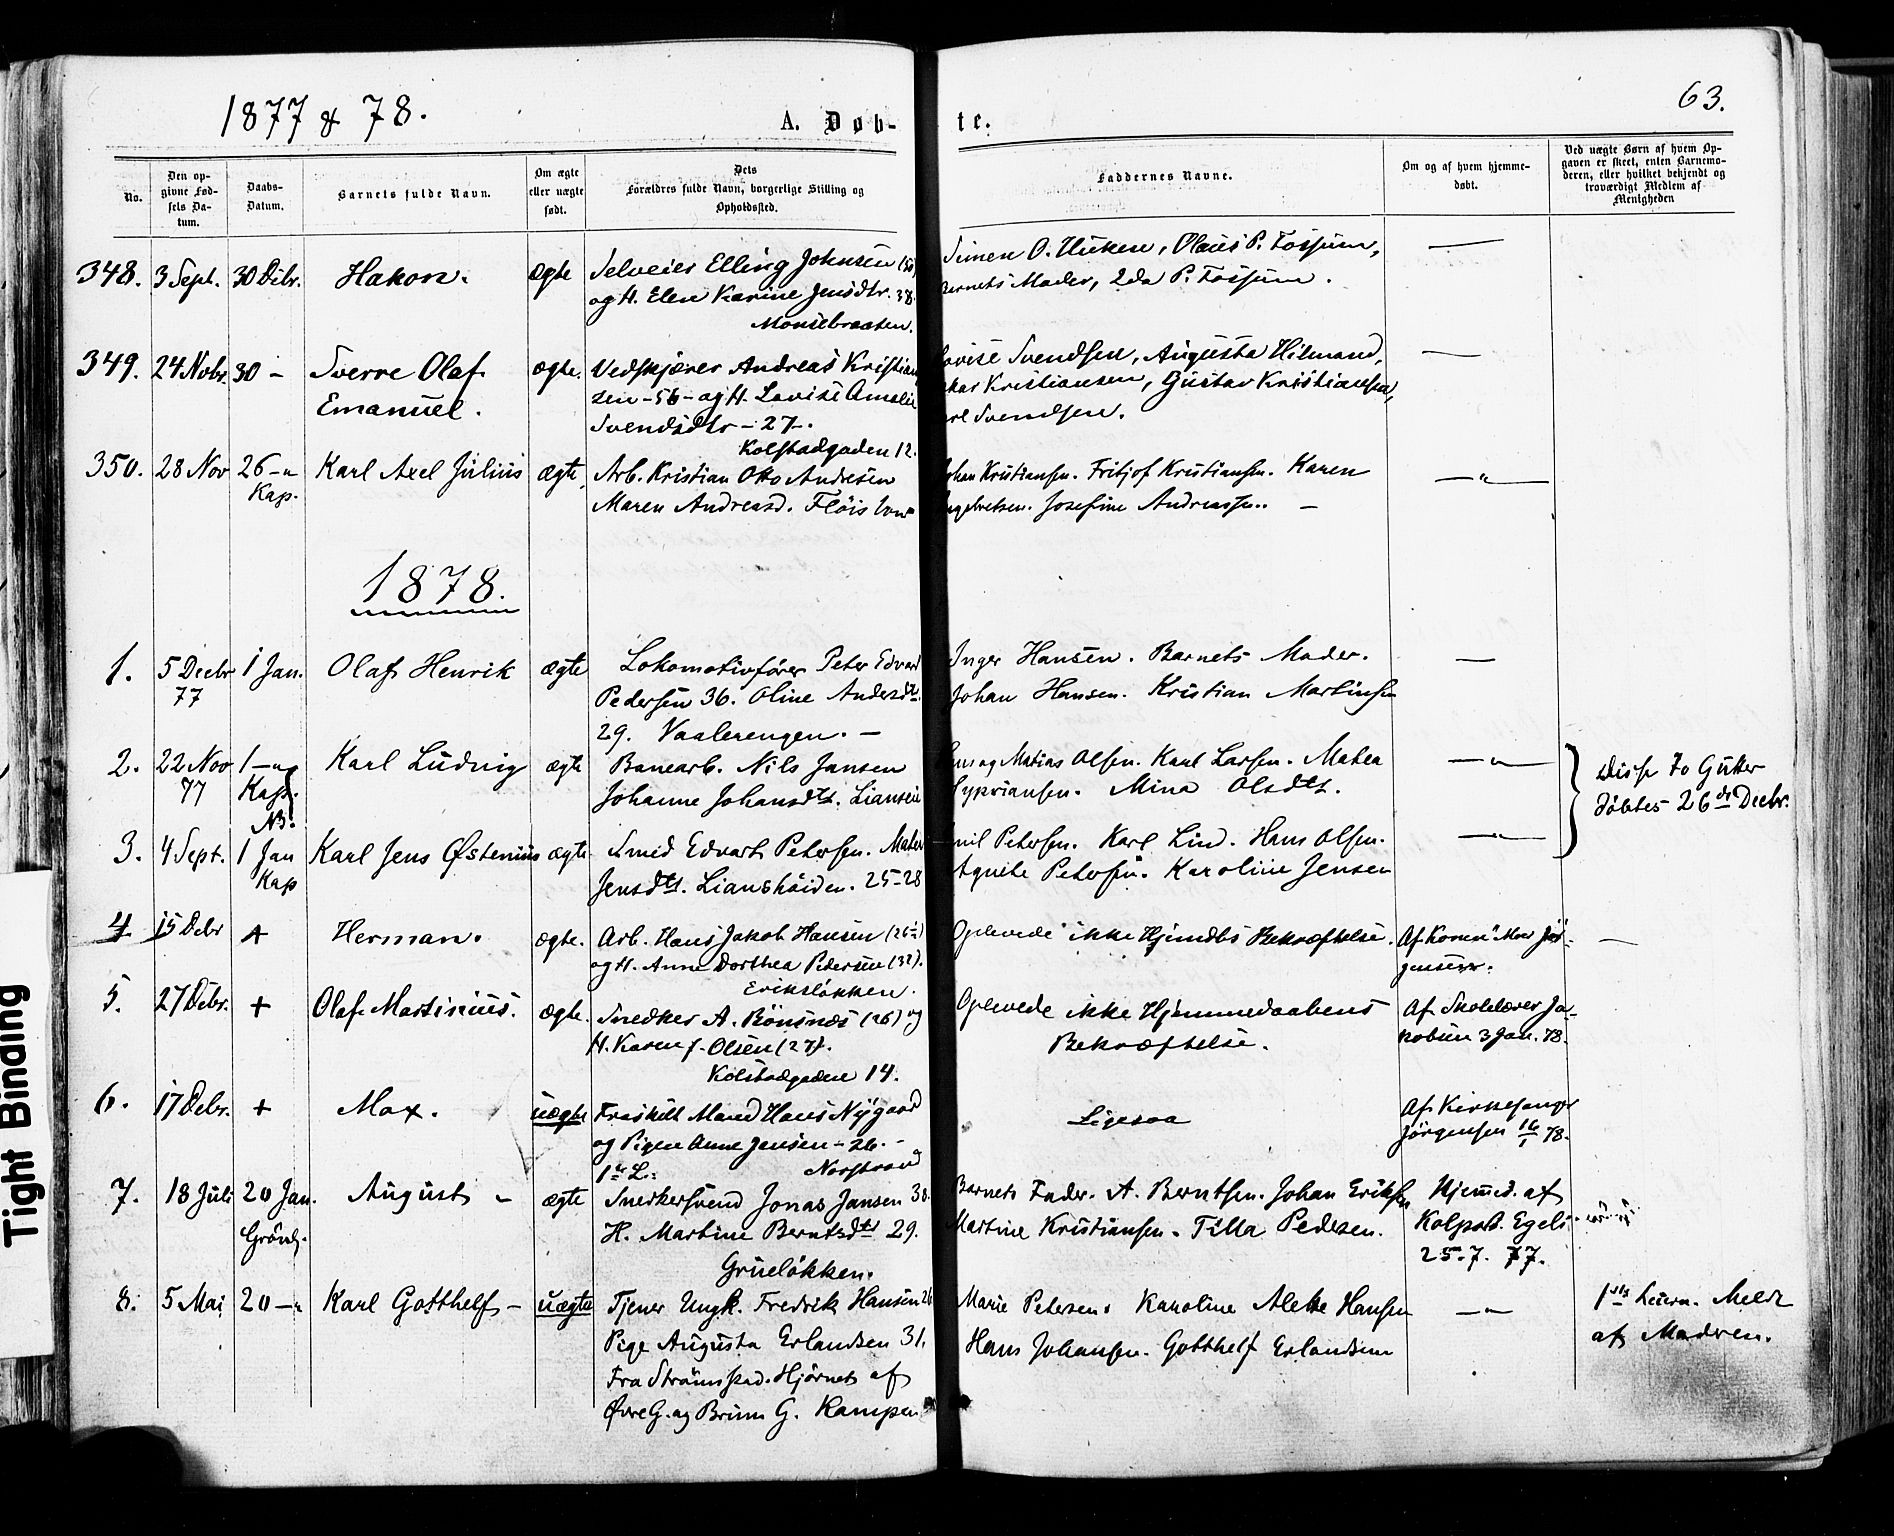 1877 & 78.
A. Døb-
te.
63.
No.
Den op-
givne Fød-
sels Da-
tum.
Daabs-
Datum.
Barnets fulde Navn.
Om ægte
eller uægte
født.
Dets
Forældres fulde Navn, borgerlige Stilling og
Opholdssted.
Faddernes Navne.
Om og af hvem hjemme-
døbt.
Ved uægte Børn af hvem Op-
gaven er skeet, enten Barnemo-
deren, eller hvilket bekjendt og
troværdigt Medlem af
Menigheden
348. 3 Sept. 30 Debr. Hakon. ægte Selveier Elling Johnsen
og H. Elen Karine Jensdtr. 38.
Monsebraaten.
Simen O. Olaus P. Fossum,
Moder, P. Fossum.
349. 24 Novbr. 30 - Sverre Olaf
Emanuel.
ægte. Vedskjærer Andreas Kristian
sen - 56 - og H. Lovise Amalie
Svendsdtr - 27 -.
Kolstadgaden 12.
Svendsen, Augusta Hilmand,
Kristiansen, Gustav Kristiansen,
Svendsen.
350. 28 Nov 26 - "
Kap.
Karl Axel Julius ægte Arb. Kristian Otto Andresen
Maren Andreasd. Fløis
Kristiansen. Fritjof Kristiansen. Karen
Josefine Andreassen. -
1878.
1. 5 Decbr
77
1 Jan. Olaf Henrik ægte Lokomotivfører Peter Edvard
Pedersen 36. Oline Andersdtr.
29. Vaalerengen. -
Inger Hansen. Barnets Moder.
Johan Hansen. Kristian Martinsen
2. 22 Nov
77
1 - "
Kap.
NB.
Karl Ludvig ægte Banearb. Nils Jansen
Johanne Johansdtr. Liansveien
Matias Olsen. Karl Larsen. Matea
Cypriansen. Mina Olsdtr.
Disse To Gutter
døbtes 26de Decbr.
3. 4 Sept. 1 Jan
Kap
Karl Jens Østenius ægte Smed Edvart Petersen. Matea
Jensdtr. Lianshøiden. 25-28
Petersen. Karl Lind. Hans Olsen.
Agnete Petersen. Karoline Jensen
4 15 Debr + Herman. ægte. Arb. Hans Jakob Hansen
og H. Anne Dorthea Pedersen (32).
Eriksløkken.
Oplevede ikke Hjemdbs Bekræftelse.
Af Konen Jør-
gensen.
5. 27 Debr. + Olaf Martinius. ægte. Snedker A. Bönsnes (26) og
H. Karen J. Olsen (27).
Kolstadgaden 14.
Oplevede ikke Hjemmedaabens
Bekræftelse.
Af Skolelærer Ja-
kobsen 3 Jan. 78.
6. 17 Debr. + Max. uægte Fraskilt Mand Hans Nygaard
og Pigen Anne Jensen - 26. -
1ste L: Norstrand
Ligesaa
Af Kirkesanger
Jørgensen 16/1 78.
7. 18 Juli 20 Jan.
Grønl.
August - ægte Snedkersvend Jonas Jansen 30.
H. Martine Berntsdtr 29.
Grueløkken.
Barnets Fader. A. Berntsen. Johan Eriksen
Martine Kristiansen. Tilla Pedersen.
Hjemmed. af
Kolport. Egels
25-7. 77.
8. 5 Mai 20 - " Karl Gotthelf - uægte Tjener Ungk. Fredrik Hansen 26
Pige Augusta Erlandsen 31.
Fra Strømstad. Hjørnet af
Øvre G. og Brinn G. Kampen
Marie Petersen. Karoline Hansen
Hans Johansen. Gotthelf Erlandsen
1ste Leierm. Meldt
af Madren.
Tight Binding